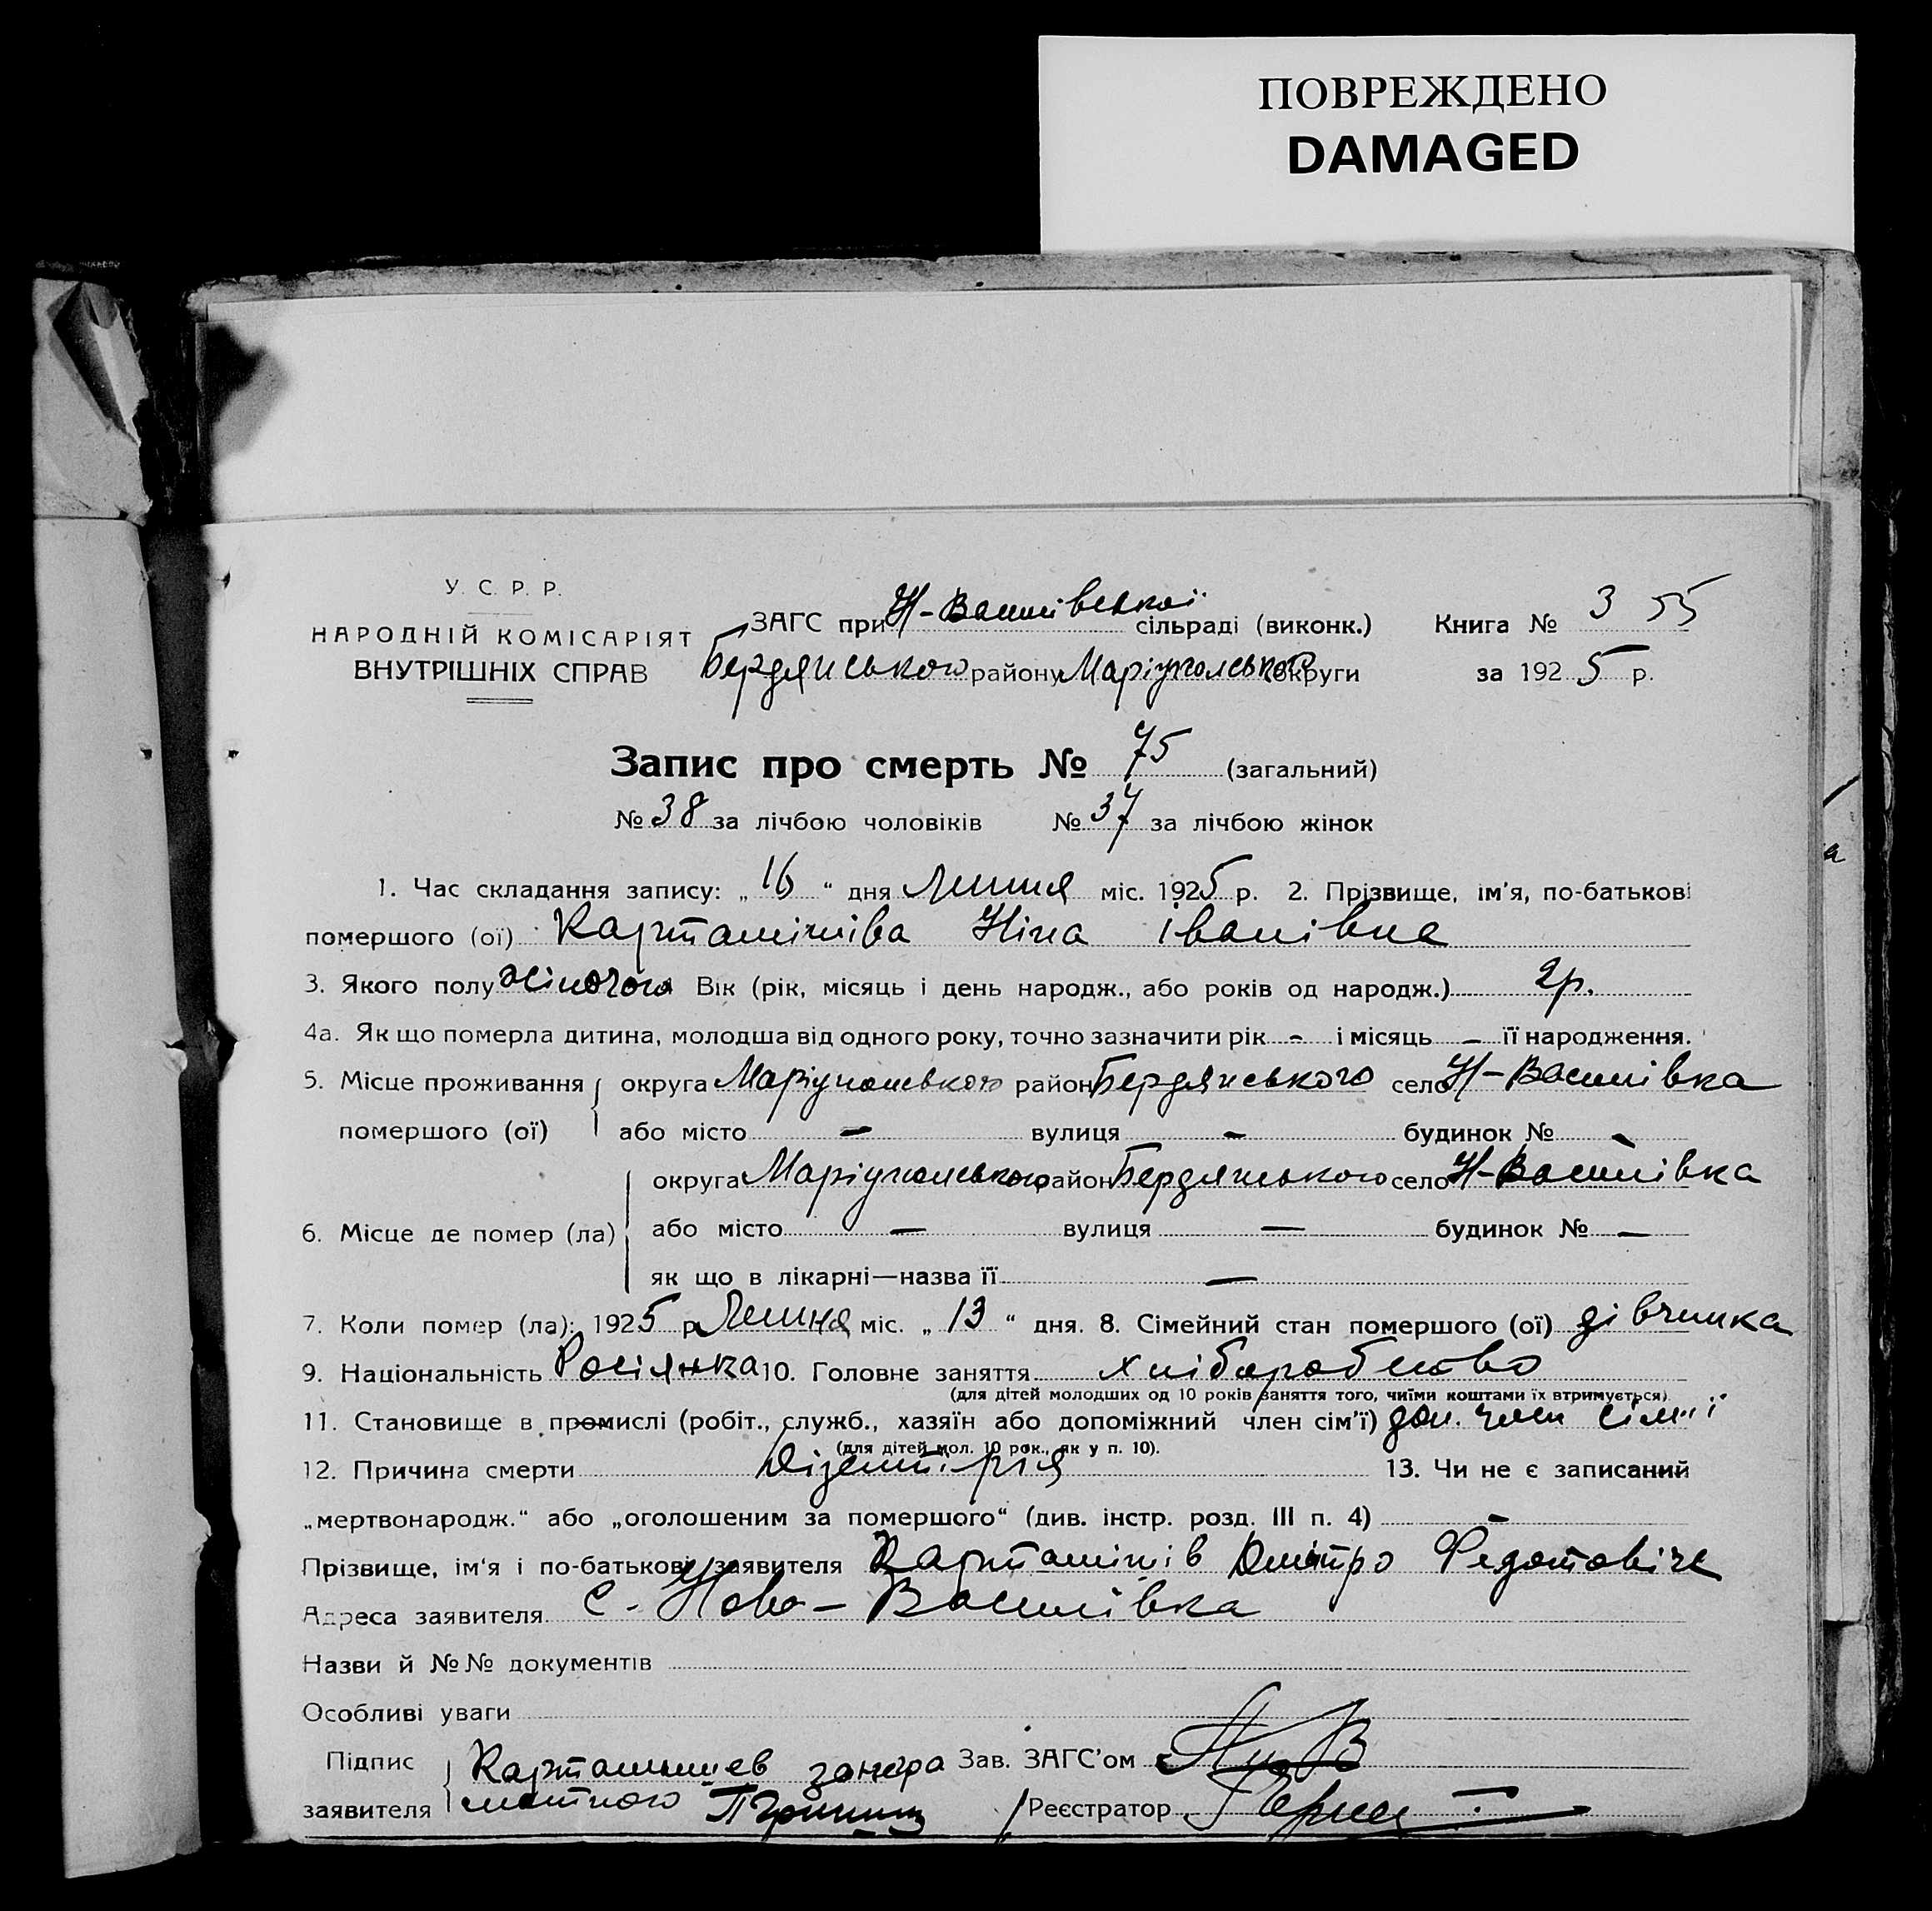 ПОВРЕЖДЕНО
DAMAGED
У. С. Р. Р.
НАРОДНІЙ КОМІСАРІЯТ
ВНУТРІШНІХ СПРАВ
ЗАГС при Н-Василівській сільраді (виконк.)
Бердянського району Маріупольсько округи
Книга № 3 55
за 1925 р.
Запис про смерть № 75 (загальний)
№ 38 за лічбою чоловіків № 37 за лічбою жінок
1. Час складання запису: „ 16 “ дня Липня міс. 1925 р. 2. Прізвище, ім'я, по-батькові
помершого (ої) Карташівіва Ніна Іванівна
3. Якого полу жіночого Вік (рік, місяць і день народж., або років од народж.) 2р.
4а. Як що померла дитина, молодша від одного року, точно зазначити рік - і місяць - її народження.
5. Місце проживання округа Маріупольського район Бердянського село Н-Василівка
помершого (ої) або місто - вулиця - будинок № -
округа Маріупольського район Бердянського село Н-Василівка
6. Місце де помер (ла) або місто — вулиця — будинок № —
як що в лікарні—назва її —
7. Коли помер (ла): 1925 р. Липня міс. „ 13 “ дня. 8. Сімейний стан помершого (ої) дівчинка
9. Національність Росіянка 10. Головне заняття хліборобство
(для дітей молодших од 10 років заняття того, чиїми коштами їх втримується)
11. Становище в промислі (робіт., служб., хазяїн або допоміжний член сім'ї) доп. член сім'ї
(для дітей мол. 10 рок., як у п. 10).
12. Причина смерти Дізентірія 13. Чи не є записаний
„мертвонародж.“ або „оголошеним за помершого“ (див. інстр. розд. III п. 4) -
Прізвище, ім'я і по-батькові заявителя Дмітро Федотовіч
Адреса заявителя с. Ново-Василівка
Назви й №№ документів
Особливі уваги
Підпис Зав. ЗАГС'ом
заявителя Реєстратор